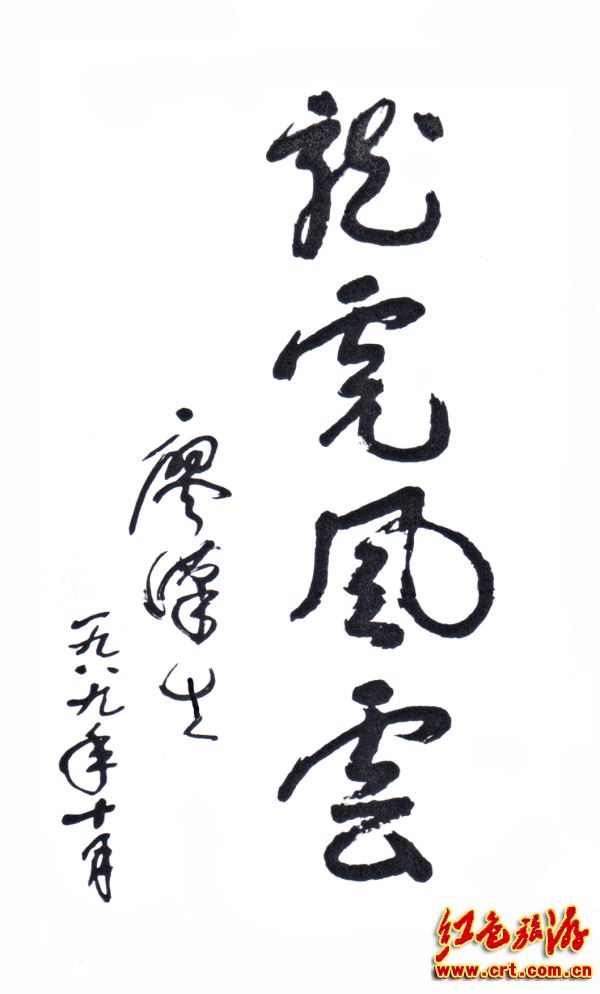 龍虎風雲
廖漢生
一九八九年十月
红色旅游
www.crt.com.cn